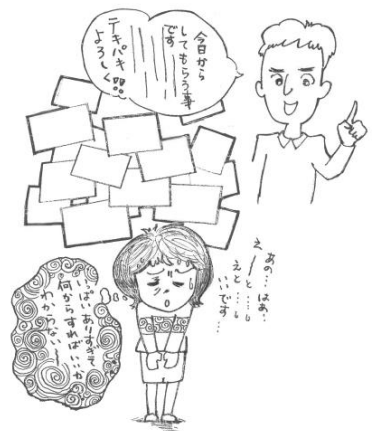 今日から
してもらう事
です
テキパキ
よろしく!!
あの…はぁ…
えーと…
えと…
いいです…
いっぱいありすぎて
何からすればいいか
わからない…